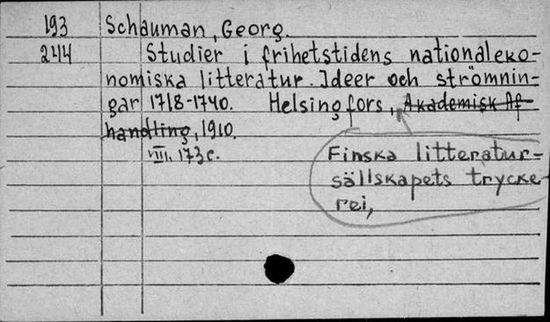 193 Schauman, Georg.
244 Studier i frihetstidens nationaleko-
nomiska litteratur. Ideer och strömnin-
gar 1718-1740. Helsingfors, Akademisk Af-
handling, 1910.
VIII, 173 c.
Finska litteratur-
sällskapets trycke-
rei,